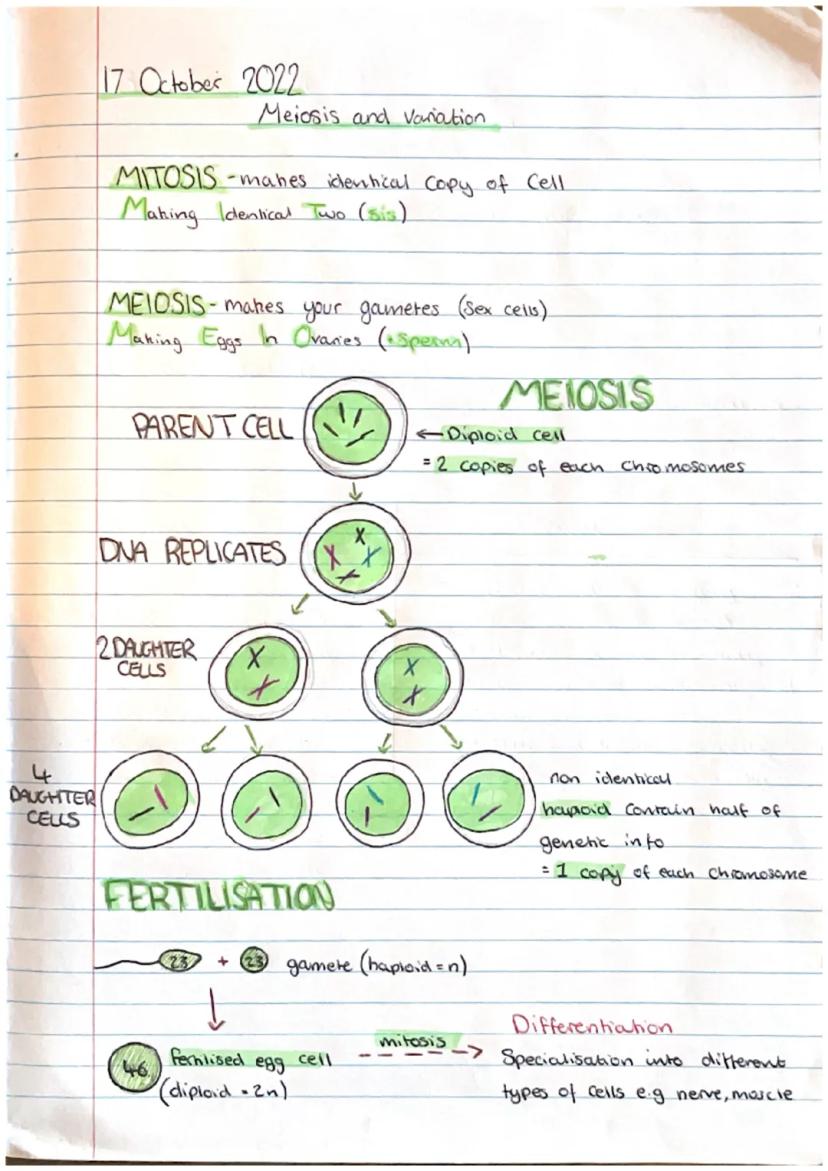 17 October 2022
Meiosis and Variation
MITOSIS - makes identical copy of Cell
Making Identical Two (sis)
MEIOSIS - makes your gametes (Sex cells)
Making Eggs In Ovaries (+Sperm)
MEIOSIS
PARENT CELL
← Diploid cell
= 2 copies of each Chromosomes
DNA REPLICATES
2 DAUGHTER
CELLS
4
DAUGHTER
CELLS
non identical
haploid contain half of
genetic info
= 1 copy of each chromosome
FERTILISATION
23 + 23 gamete (haploid = n)
Differentiation
mitosis
46 fertilised egg cell
Specialisation into different
(diploid = 2n)
types of cells e.g nerve, muscle